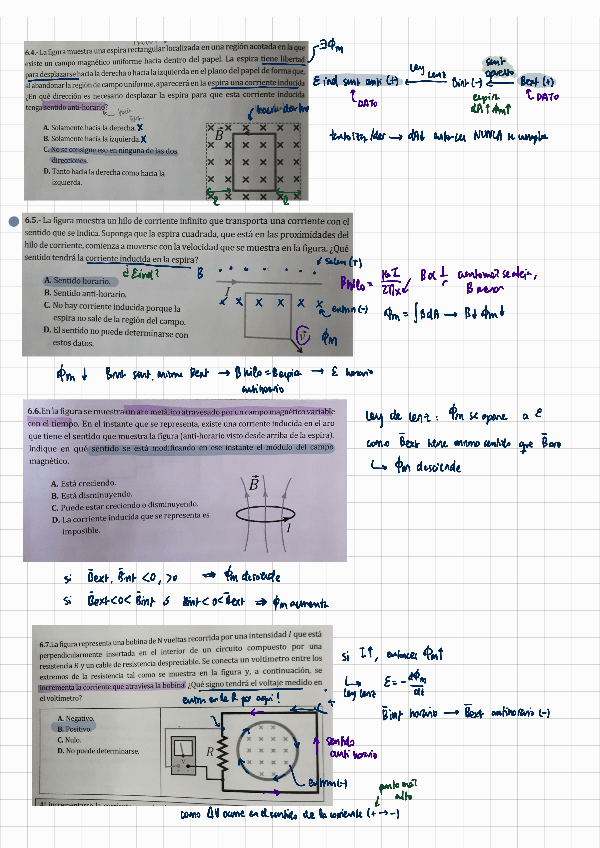 6.4.- La figura muestra una espira rectangular localizada en una región acotada en la que
existe un campo magnético uniforme hacia dentro del papel. La espira tiene libertad
para desplazarse hacia la derecha o hacia la izquierda en el plano del papel de forma que,
al abandonar la región de campo uniforme, aparecerá en la espira una corriente inducida
¿En qué dirección es necesario desplazar la espira para que esta corriente inducida
tenga sentido anti-horario?
A. Solamente hacia la derecha. X
B. Solamente hacia la izquierda. X
C. No se consigue eso en ninguna de las dos
direcciones.
D. Tanto hacia la derecha como hacia la
izquierda.
hacia dentro
B
l l
∃Φm
E ind sent anti (+) ← Ley Lenz Bint (-) ← sent opuesto Bext (+)
DATO
DATO
NUNCA se cumple
6.5.- La figura muestra un hilo de corriente infinito que transporta una corriente con el
sentido que se indica. Suponga que la espira cuadrada, que está en las proximidades del
hilo de corriente, comienza a moverse con la velocidad que se muestra en la figura. ¿Qué
sentido tendrá la corriente inducida en la espira?
¿Eind?
A. Sentido horario.
B. Sentido anti-horario.
C. No hay corriente inducida porque la
espira no sale de la región del campo.
D. El sentido no puede determinarse con
estos datos.
B
salen (+)
I
x x x x x x
entran (-)
v
Φm
B hilo = μ0 I / 2πx
Φm = ∫ B dA → B↓ Φm↓
Φm ↓ Bint sent. mismo Bext → B hilo = B espira → E horario
antihorario
6.6.En la figura se muestra un aro metálico atravesado por un campo magnético variable
con el tiempo. En el instante que se representa, existe una corriente inducida en el aro
que tiene el sentido que muestra la figura (anti-horario visto desde arriba de la espira).
Indique en qué sentido se está modificando en ese instante el módulo del campo
magnético.
A. Está creciendo.
B. Está disminuyendo.
C. Puede estar creciendo o disminuyendo.
D. La corriente inducida que se representa es
imposible.
B
I
Ley de Lenz: Φm se opone a E
como Bext tiene mismo sentido que Baro
↳ Φm desciende
si Bext, Bint <0, >0 ⇒ Φm desciende
si Bext<0< Bint ó Bint<0<Bext ⇒ Φm aumenta
6.7.La figura representa una bobina de N vueltas recorrida por una intensidad I que está
perpendicularmente insertada en el interior de un circuito compuesto por una
resistencia R y un cable de resistencia despreciable. Se conecta un voltímetro entre los
extremos de la resistencia tal como se muestra en la figura y, a continuación, se
incrementa la corriente que atraviesa la bobina. ¿Qué signo tendrá el voltaje medido en
el voltímetro?
entra en la R por aquí!
A. Negativo.
B. Positivo.
C. Nulo.
D. No puede determinarse.
V
R
sentido
antihorario
entran (-)
si I↑, entonces Φm↑
↳ Ley Lenz E = - dΦm/dt
Bint horario → Bext antihorario (-)
punto más
alto
como ΔV ocurre en el sentido de la corriente (+ → -)